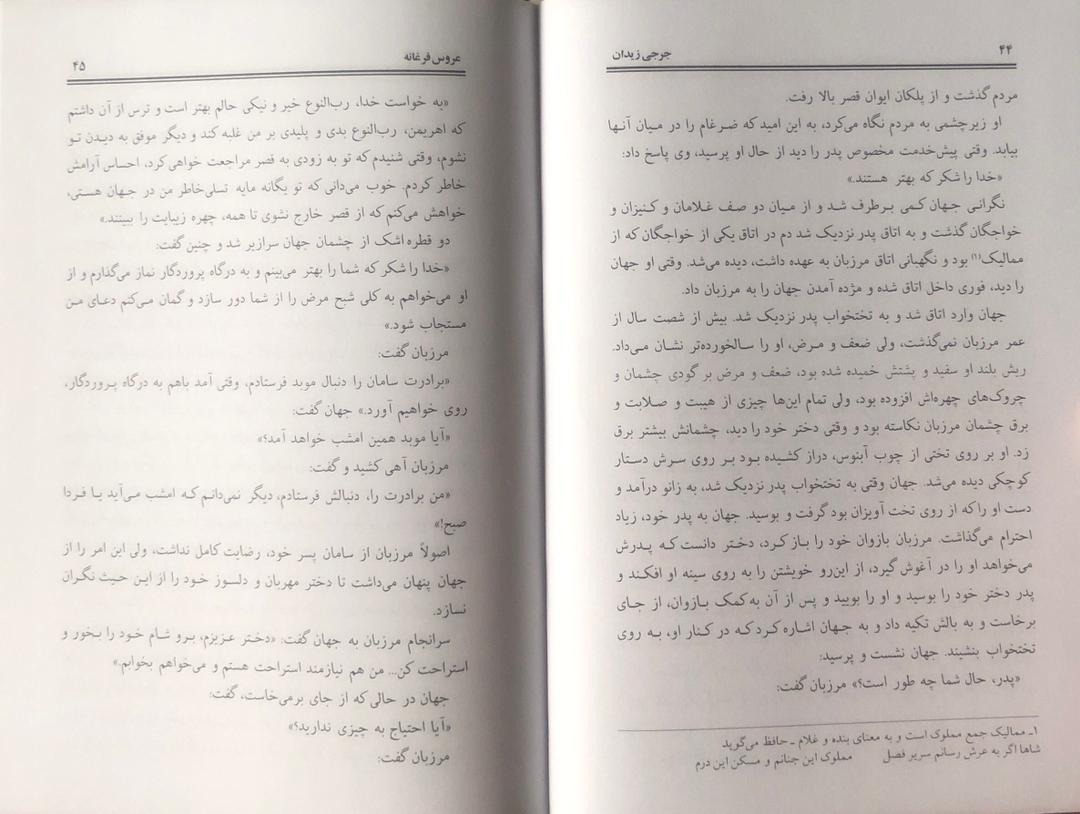 ۴۴ جرجی زیدان
مردم گذشت و از پلکان ایوان قصر بالا رفت.
او زیرچشمی به مردم نگاه می‌کرد، به این امید که ضرغام را در میان آنها
بیابد. وقتی پیش‌خدمت مخصوص پدر را دید از حال او پرسید، وی پاسخ داد:
«خدا را شکر که بهتر هستند.»
نگرانی جهان کمی برطرف شد و از میان دو صف غلامان و کنیزان و
خواجگان گذشت و به اتاق پدر نزدیک شد دم در اتاق یکی از خواجگان که از
ممالیک(۱) بود و نگهبانی اتاق مرزبان به عهده داشت، دیده می‌شد. وقتی او جهان
را دید، فوری داخل اتاق شده و مژده آمدن جهان را به مرزبان داد.
جهان وارد اتاق شد و به تختخواب پدر نزدیک شد. بیش از شصت سال از
عمر مرزبان نمی‌گذشت، ولی ضعف و مرض، او را سالخورده‌تر نشان می‌داد.
ریش بلند او سفید و پشتش خمیده شده بود، ضعف و مرض بر گودی چشمان و
چروک‌های چهره‌اش افزوده بود، ولی تمام این‌ها چیزی از هیبت و صلابت و
برق چشمان مرزبان نکاسته بود و وقتی دختر خود را دید، چشمانش بیشتر برق
زد. او بر روی تختی از چوب آبنوس، دراز کشیده بود بر روی سرش دستار
کوچکی دیده می‌شد. جهان وقتی به تختخواب پدر نزدیک شد، به زانو درآمد و
دست او را که از روی تخت آویزان بود گرفت و بوسید. جهان به پدر خود، زیاد
احترام می‌گذاشت. مرزبان بازوان خود را باز کرد، دختر دانست که پدرش
می‌خواهد او را در آغوش گیرد، از این‌رو خویشتن را به روی سینه او افکند و
پدر دختر خود را بوسید و او را بویید و پس از آن به‌کمک بازوان، از جای
برخاست و به بالش تکیه داد و به جهان اشاره کرد که در کنار او، به روی
تختخواب بنشیند. جهان نشست و پرسید:
«پدر، حال شما چه طور است؟» مرزبان گفت:
۱ـ ممالیک جمع مملوک است و به معنای بنده و غلام ـ حافظ می‌گوید
شاها اگر به عرش رسانم سریر فضل مملوک این جنانم و مسکن این درم
عروس فرغانه ۴۵
«به خواست خدا، رب‌النوع خیر و نیکی حالم بهتر است و ترس از آن داشتم
که اهریمن، رب‌النوع بدی و پلیدی بر من غلبه کند و دیگر موفق به دیدن تو
نشوم، وقتی شنیدم که تو به زودی به قصر مراجعت خواهی کرد، احساس آرامش
خاطر کردم. خوب می‌دانی که تو یگانه مایه تسلی‌خاطر من در جهان هستی،
خواهش می‌کنم که از قصر خارج نشوی تا همه، چهره زیبایت را ببینند.»
دو قطره اشک از چشمان جهان سرازیر شد و چنین گفت:
«خدا را شکر که شما را بهتر می‌بینم و به درگاه پروردگار نماز می‌گذارم و از
او می‌خواهم به کلی شبح مرض را از شما دور سازد و گمان می‌کنم دعای من
مستجاب شود.»
مرزبان گفت:
«برادرت سامان را دنبال موبد فرستادم، وقتی آمد باهم به درگاه پروردگار،
روی خواهیم آورد.» جهان گفت:
«آیا موبد همین امشب خواهد آمد؟»
مرزبان آهی کشید و گفت:
«من برادرت را، دنبالش فرستادم، دیگر نمی‌دانم که امشب می‌آید یا فردا
صبح!»
اصولاً مرزبان از سامان پسر خود، رضایت کامل نداشت، ولی این امر را از
جهان پنهان می‌داشت تا دختر مهربان و دلسوز خود را از این حیث نگران
نسازد.
سرانجام مرزبان به جهان گفت: «دختر عزیزم، برو شام خود را بخور و
استراحت کن... من هم نیازمند استراحت هستم و می‌خواهم بخوابم.»
جهان در حالی که از جای برمی‌خاست، گفت:
«آیا احتیاج به چیزی ندارید؟»
مرزبان گفت: